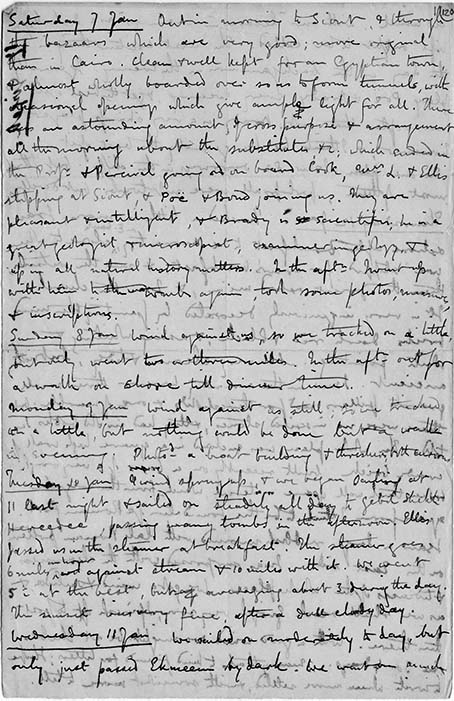 Saturday 7 Jan Out in morning to Siout, & through
the bazaars which are very good; more original
than in Cairo. Clean & well kept for an Egyptian town,
& almost wholly boarded over so as to form tunnels, with
occasional openings which give ample light for all. There
was an astounding amount of cross purpose & arrangement
all the morning about the substitutes &c. which ended in
the & Percival going on on board Cook, L. & Ellis
stopping at Siout, & Poë & Bond joining us. They are
pleasant & intelligent, & Brady is scientific, he is a
great geologist & microscopist, examiner in geology, &
up in all natural history matters. In the aftn I went up
with him to the tombs again, took some photos, measures,
& inscriptions.
Sunday 8 Jan wind against us, so we tracked on a little,
but only went two or three miles. In the aftn out for
a walk on shore till dinner time.
Monday 9 Jan wind against us still. So we tracked
on a little, but nothing could be done but a walk
in evening. Photd a boat building &
Tuesday 10 Jan A wind sprung up & we began sailing at
11 last night & sailed on steadily all day to Gebel Sheikh
Hereedee passing many tombs in the afternoon. Ellis
passed us in the steamer at breakfast. The steamer goes
6 miles against stream & 10 miles with it. We went
5 at the best, but averaging about 3 during the day.
The sunset was very fine, after a dull cloudy day.
Wednesday 11 Jan we sailed on moderately to day, but
only just passed Ekhmeem by dark. We went on much